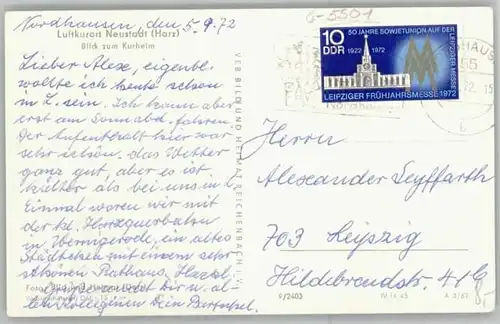 Nordhausen, den 5.9.72
Luftkurort Neustadt (Harz)
Blick zum Kurheim
Lieber Alex, eigentl.
wollte ich heute schon
in L. sein. Ich kann aber
erst am Sonnabd. fahren.
Der Aufenthalt hier war
sehr schön, das Wetter
ganz gut, aber es ist
kälter als bei uns in L.
Einmal waren wir mit
der Harzquerbahn
in Wernigerode, ein altes
Städtchen mit einem sehr
schönen Rathaus. Herzl.
Grüße sendet Dir u. al-
len
Dein
VEB BILD UND HEIMAT REICHENBACH I. V.
G-5501
10
DDR
50 JAHRE SOWJETUNION AUF DER LEIPZIGER MESSE
1922 1972
LEIPZIGER FRÜHJAHRSMESSE 1972
Herrn
Alexander Seyffarth
703 Leipzig
Hildebrandstr. 41 c
9/2403
A 3/67